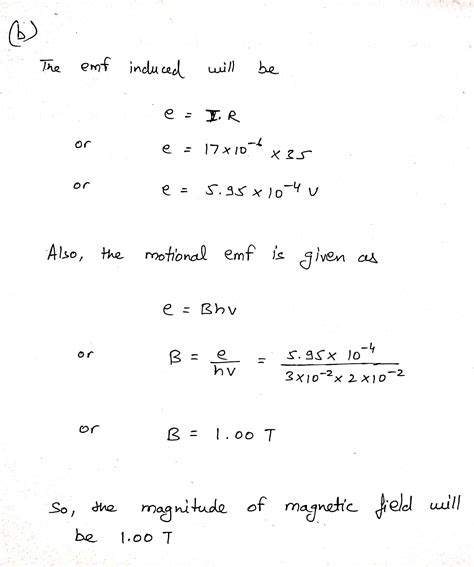 (b)
The emf induced will be
e = I.R
or e = 17×10⁻⁶ × 35
or e = 5.95 × 10⁻⁴ V
Also, the motional emf is given as
e = Bhv
or B = e/hv = 5.95 × 10⁻⁴/3×10⁻² × 2×10⁻²
or B = 1.00 T
So, the magnitude of magnetic field will
be 1.00 T